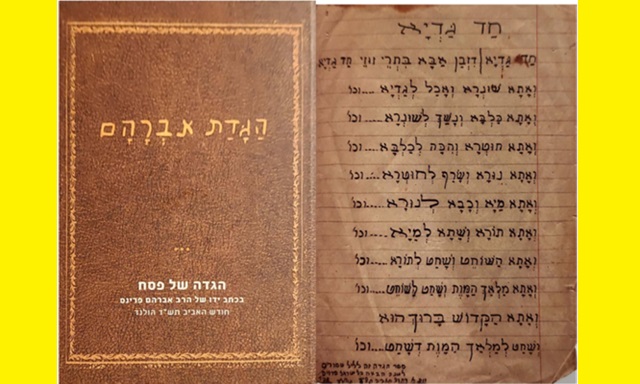 הַגָּדַת אַבְרָהָם
...
הגדה של פסח
בכתב ידו של הרב אברהם פרינס
חודש האביב תש"ד הולנד
חַד גַּדְיָא
חַד גַּדְיָא דִּזְבַן אַבָּא בִּתְרֵי זוּזֵי חַד גַּדְיָא
וְאָתָא שׁוּנְרָא וְאָכַל לְגַדְיָא.....וכו'
וְאָתָא כַּלְבָּא וְנָשַׁךְ לְשׁוּנְרָא.....וכו'
וְאָתָא חוּטְרָא וְהִכָּה לְכַלְבָּא.....וכו'
וְאָתָא נוּרָא וְשָׂרַף לְחוּטְרָא.....וכו'
וְאָתָא מַיָּא וְכָבָא לְנוּרָא.....וכו'
וְאָתָא תוֹרָא וְשָׁתָא לְמַיָּא.....וכו'
וְאָתָא הַשּׁוֹחֵט וְשָׁחַט לְתוֹרָא.....וכו'
וְאָתָא מַלְאַךְ הַמָּוֶת וְשָׁחַט לְשׁוֹחֵט.....וכו'
וְאָתָא הַקָּדוֹשׁ בָּרוּךְ הוּא
וְשָׁחַט לְמַלְאַךְ הַמָּוֶת דְּשָׁחַט.....וכו'